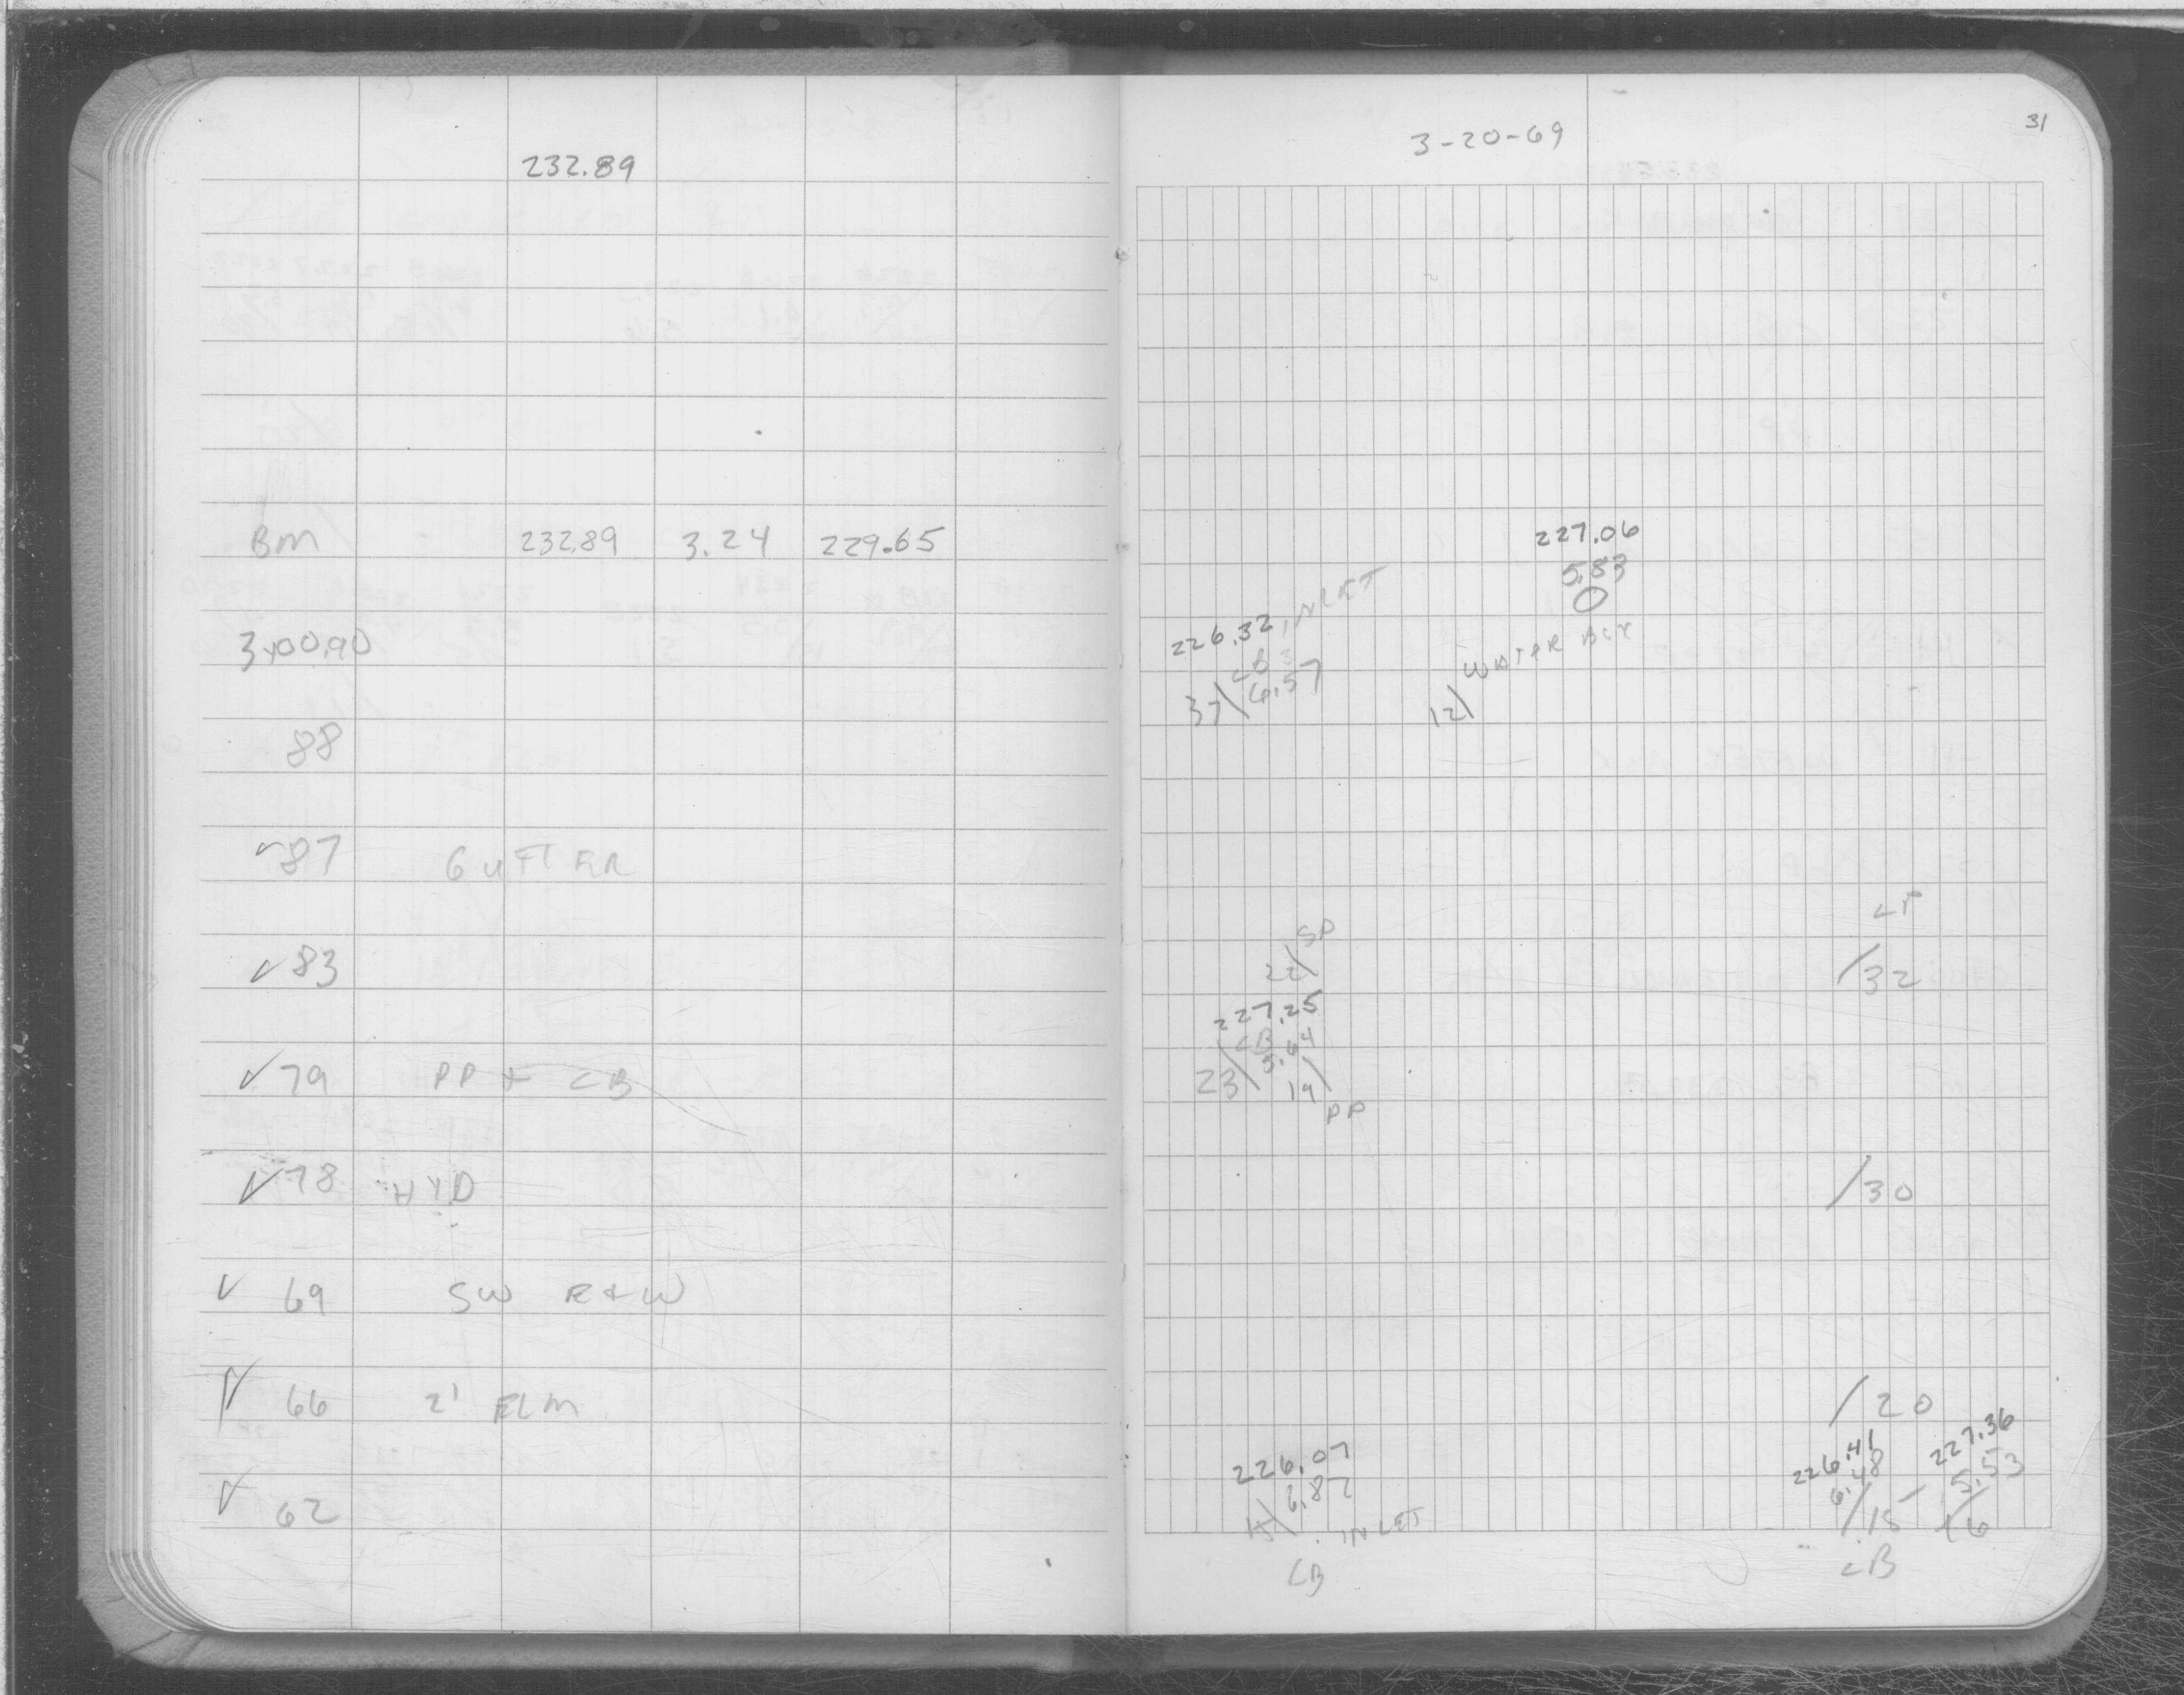 232.89
BM 232.89 3.24 229.65
3+00.90
88
✓87 GUTTER
✓83
✓79 PP + CB
✓78 HYD
✓ 69 SW E+W
✓ 66 2' ELM
✓ 62
3-20-69
31
227.06
5.83
226.32 INLET
CB
37\ 6.57
WATER
12\
LP
/32
SP
22\
227.25
CB
23\ 5.64
19\
PP
/30
/20
226.07
6.82
15\ INLET
CB
226.41
6.48
/15
CB
227.36
5.53
/16